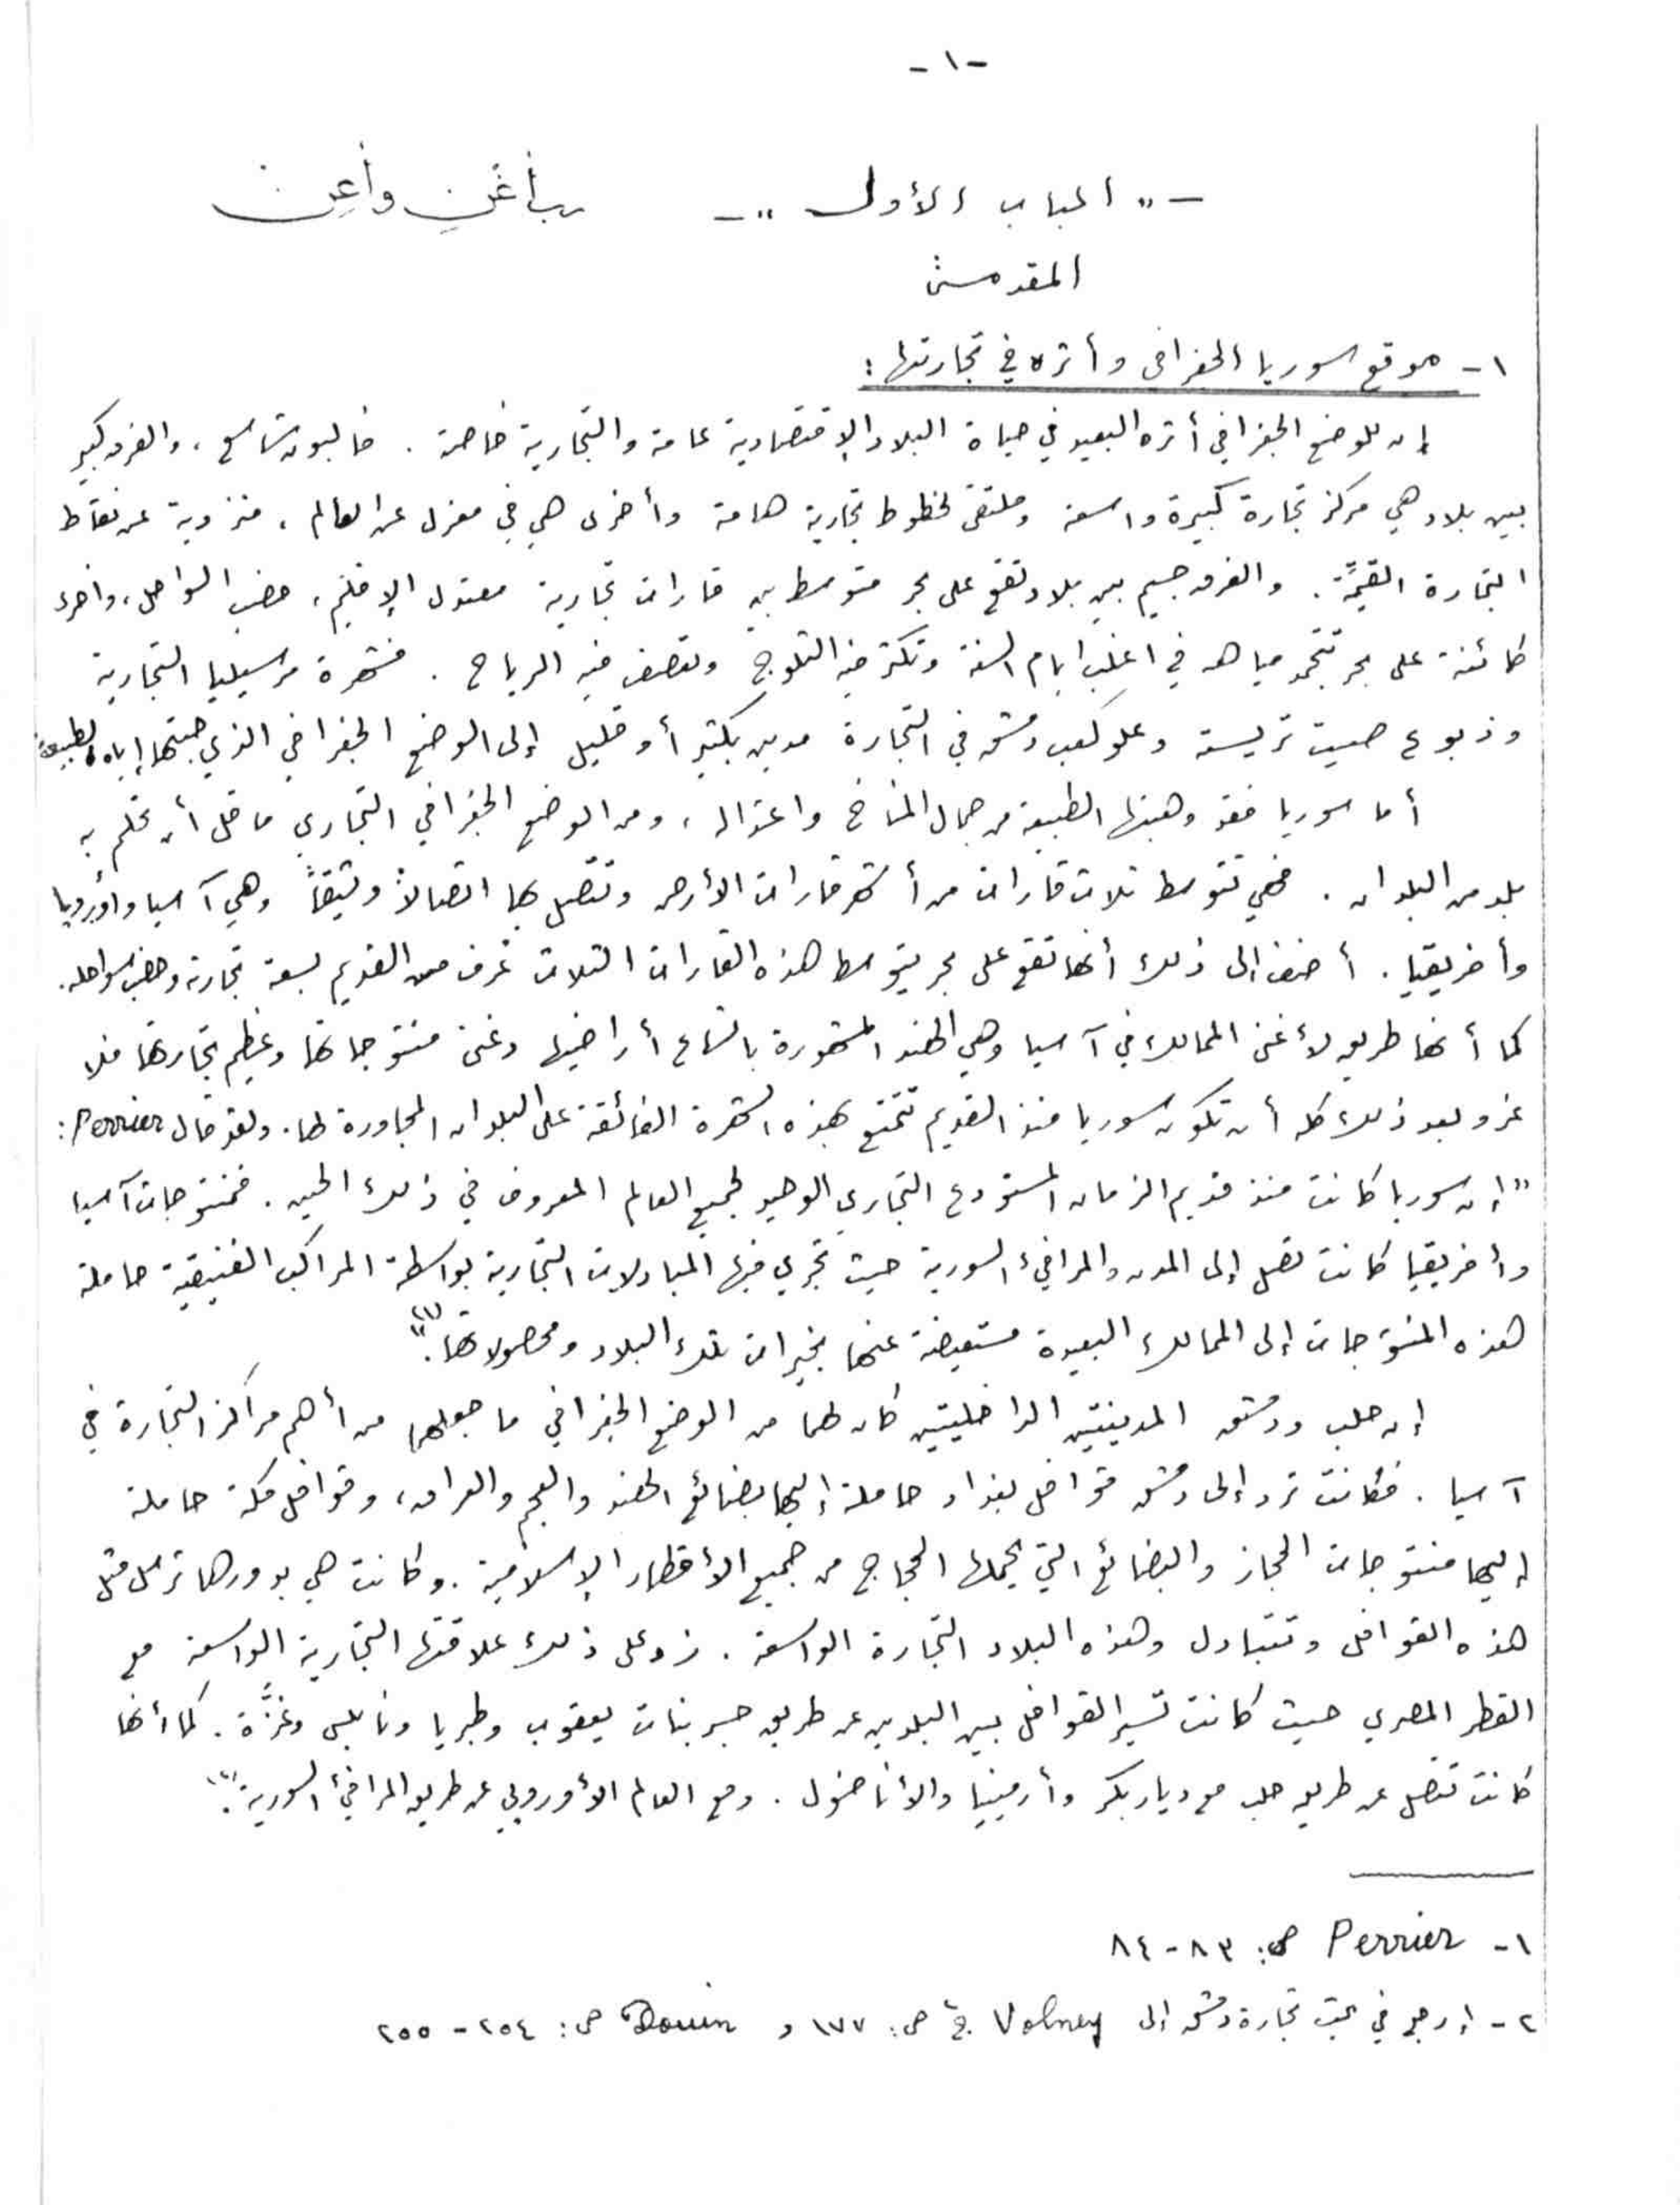 -١-
-" الباب الأول "-
رب أغن وأعن
المقدمة
١- موقع سوريا الجغرافي وأثره في تجارتها:
إن للوضع الجغرافي أثره البعيد في حياة البلاد الإقتصادية عامة والتجارية خاصة. فالبون شاسع، والفرق كبير
بين بلاد هي مركز تجارة كبيرة واسعة وملتقى لخطوط تجارية هامة وأخرى هي في معزل عن العالم، منزوية عن نقاط
التجارة القيّمة. والفرق جسيم بين بلاد تقع على بحر متوسط بين قارات تجارية معتدل الإقليم، خصب السواحل، واخرى
كائنة على بحر تتجمد مياهه في اغلب ايام السنة وتكثر فيه الثلوج وتعصف فيه الرياح. فشهرة مرسيليا التجارية
وذيوع صيت تريسته وعلو كعب دمشق في التجارة مدين بكثير أو قليل إلى الوضع الجغرافي الذي حبتها إياه الطبيعة.
أما سوريا فقد وهبتها الطبيعة من جمال المناخ واعتداله، ومن الوضع الجغرافي التجاري ما قل أن تحلم به
بلد من البلدان. فهي تتوسط ثلاث قارات من أشهر قارات الأرض وتتصل بها اتصالاً وثيقاً وهي آسيا وأوروپا
وأفريقيا. أضف إلى ذلك أنها تقع على بحر يتوسط هذه القارات الثلاث عُرف من القديم بسعة تجارته وخصب سواحله.
كما أنها طريق لأغنى الممالك في آسيا وهي الهند المشهورة باتساع أراضيها وغنى منتوجاتها وعظيم تجارتها فلا
غرو بعد ذلك كله أن تكون سوريا منذ القديم تتمتع بهذه الشهرة الفائقة على البلدان المجاورة لها. ولقد قال Perrier:
"إن سوريا كانت منذ قديم الزمان المستودع التجاري الوحيد لجميع العالم المعروف في ذلك الحين. فمنتوجات آسيا
وأفريقيا كانت تصل إلى المدن والمرافئ السورية حيث تجري فيها المبادلات التجارية بواسطة المراكب الفنيقية حاملة
هذه المنتوجات إلى الممالك البعيدة مستعيضة عنها بخيرات تلك البلاد ومحصولاتها."(١)
إن حلب ودمشق المدينتين الداخليتين كان لهما من الوضع الجغرافي ما جعلهما من أهم مراكز التجارة في
آسيا. فكانت ترد إلى دمشق قوافل بغداد حاملة إليها بضائع الهند والعجم والعراق، وقوافل مكة حاملة
إليها منتوجات الحجاز والبضائع التي يحملها الحجاج من جميع الأقطار الإسلامية. وكانت هي بدورها ترسل مثل
هذه القوافل وتتبادل وهذه البلاد التجارة الواسعة. زد على ذلك علاقتها التجارية الواسعة مع
القطر المصري حيث كانت تسير القوافل بين البلدين عن طريق جسر بنات يعقوب وطبريا ونابلس وغزّة. كما أنها
كانت تتصل عن طريق حلب مع ديار بكر وأرمينيا والأناضول. ومع العالم الأوروپي عن طريق المرافئ السورية.(٢)
١- Perrier ص: ٨٣-٨٤
٢- إرجع في بحث تجارة دمشق إلى Volney ج٢ ص: ١٧٧ و Douin ص: ٢٥٤-٢٥٥